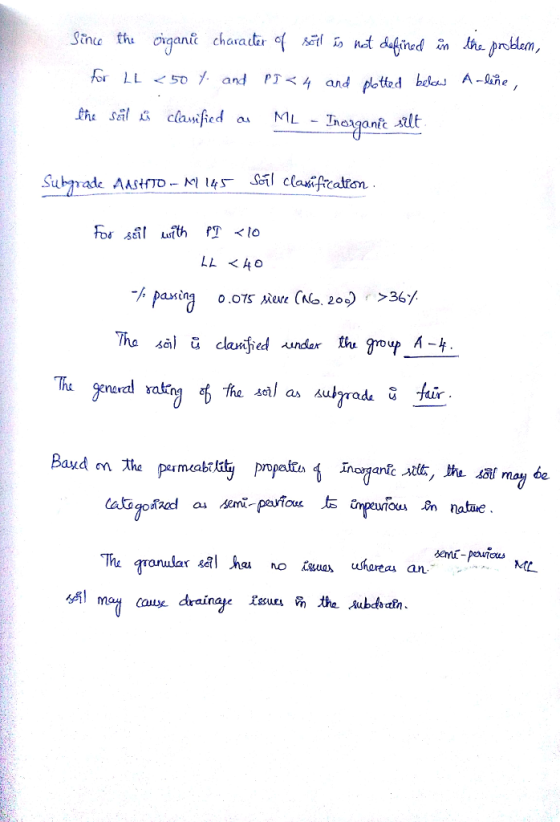 Since the organic character of soil is not defined in the problem,
for LL < 50 % and PI < 4 and plotted below A-line,
the soil is classified as ML - Inorganic silt.
Subgrade AASHTO - M 145 Soil classification.
For soil with PI < 10
LL < 40
% passing 0.075 sieve (No. 200) > 36%
The soil is classified under the group A-4.
The general rating of the soil as subgrade is fair.
Based on the permeability properties of Inorganic silts, the soil may be
categorized as semi-pervious to impervious in nature.
The granular soil has no issues whereas an semi-pervious ML
soil may cause drainage issues in the subdrain.